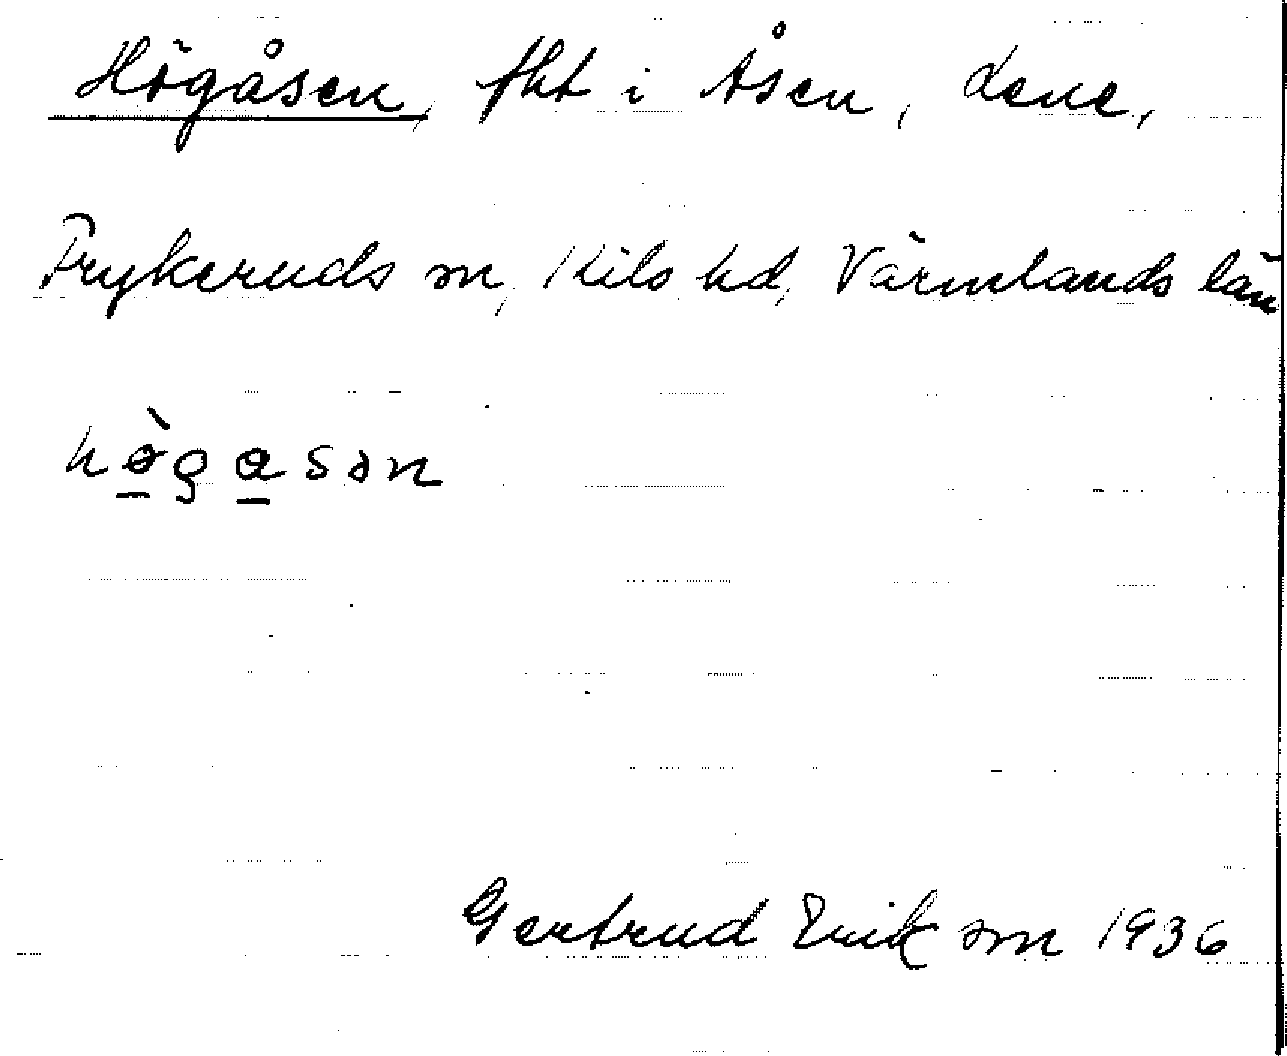 Högåsen, fht i Åsen, Lene,
Frykeruds sn, Kils hd, Värmlands län
hø̀gasən
Gertrud Erikson 1936